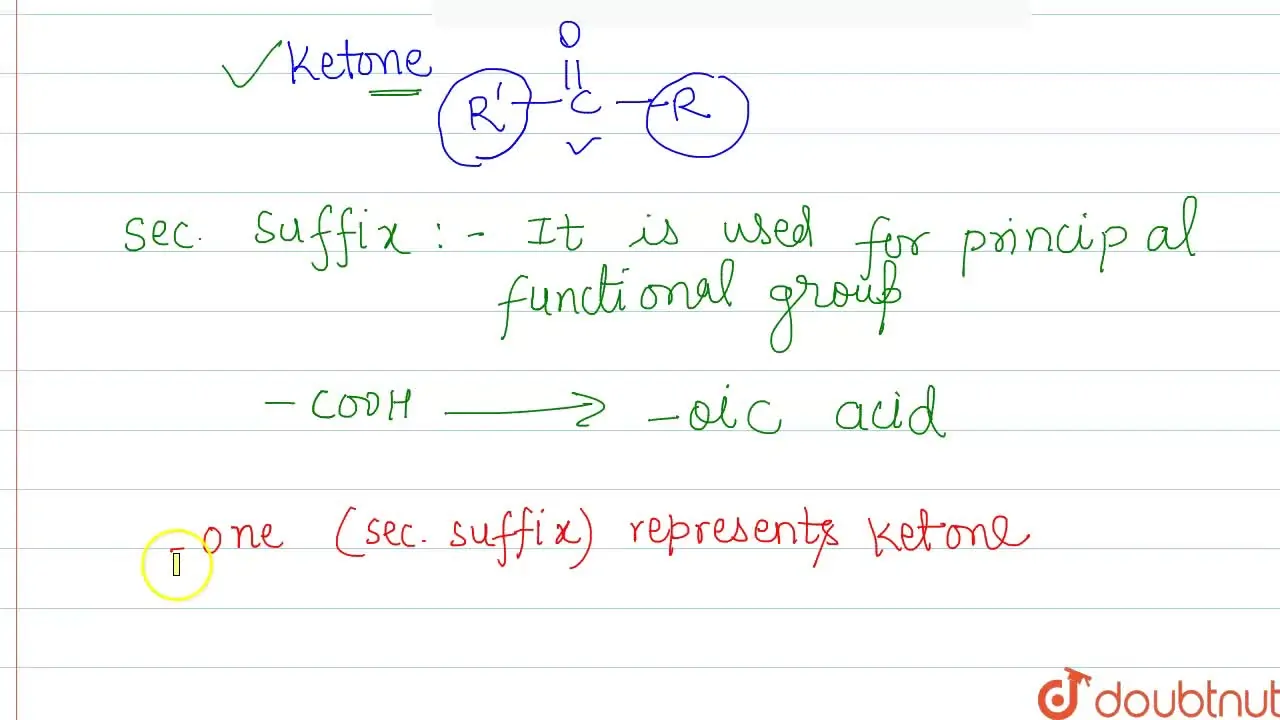 Ketone
O
||
R' — C — R
sec. suffix :- It is used for principal
functional group
- COOH ⟶ -oic acid
- one (sec. suffix) represents Ketone
doubtnut